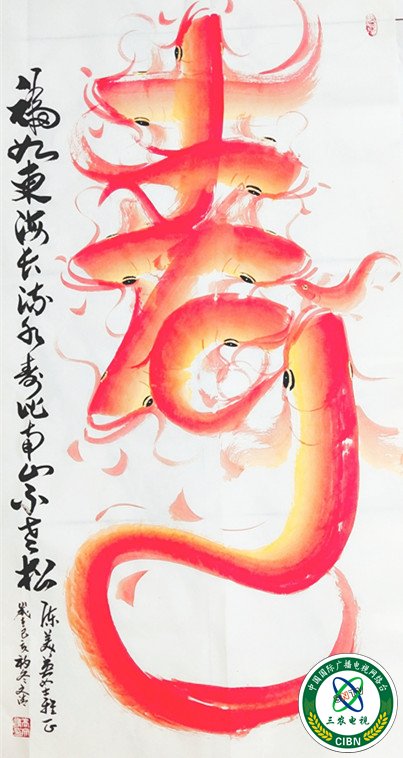 寿
福如東海长流水寿比南山不老松
陈美英女士雅正
岁在己亥初冬
中国国际广播电视网络台
三农电视
CIBN